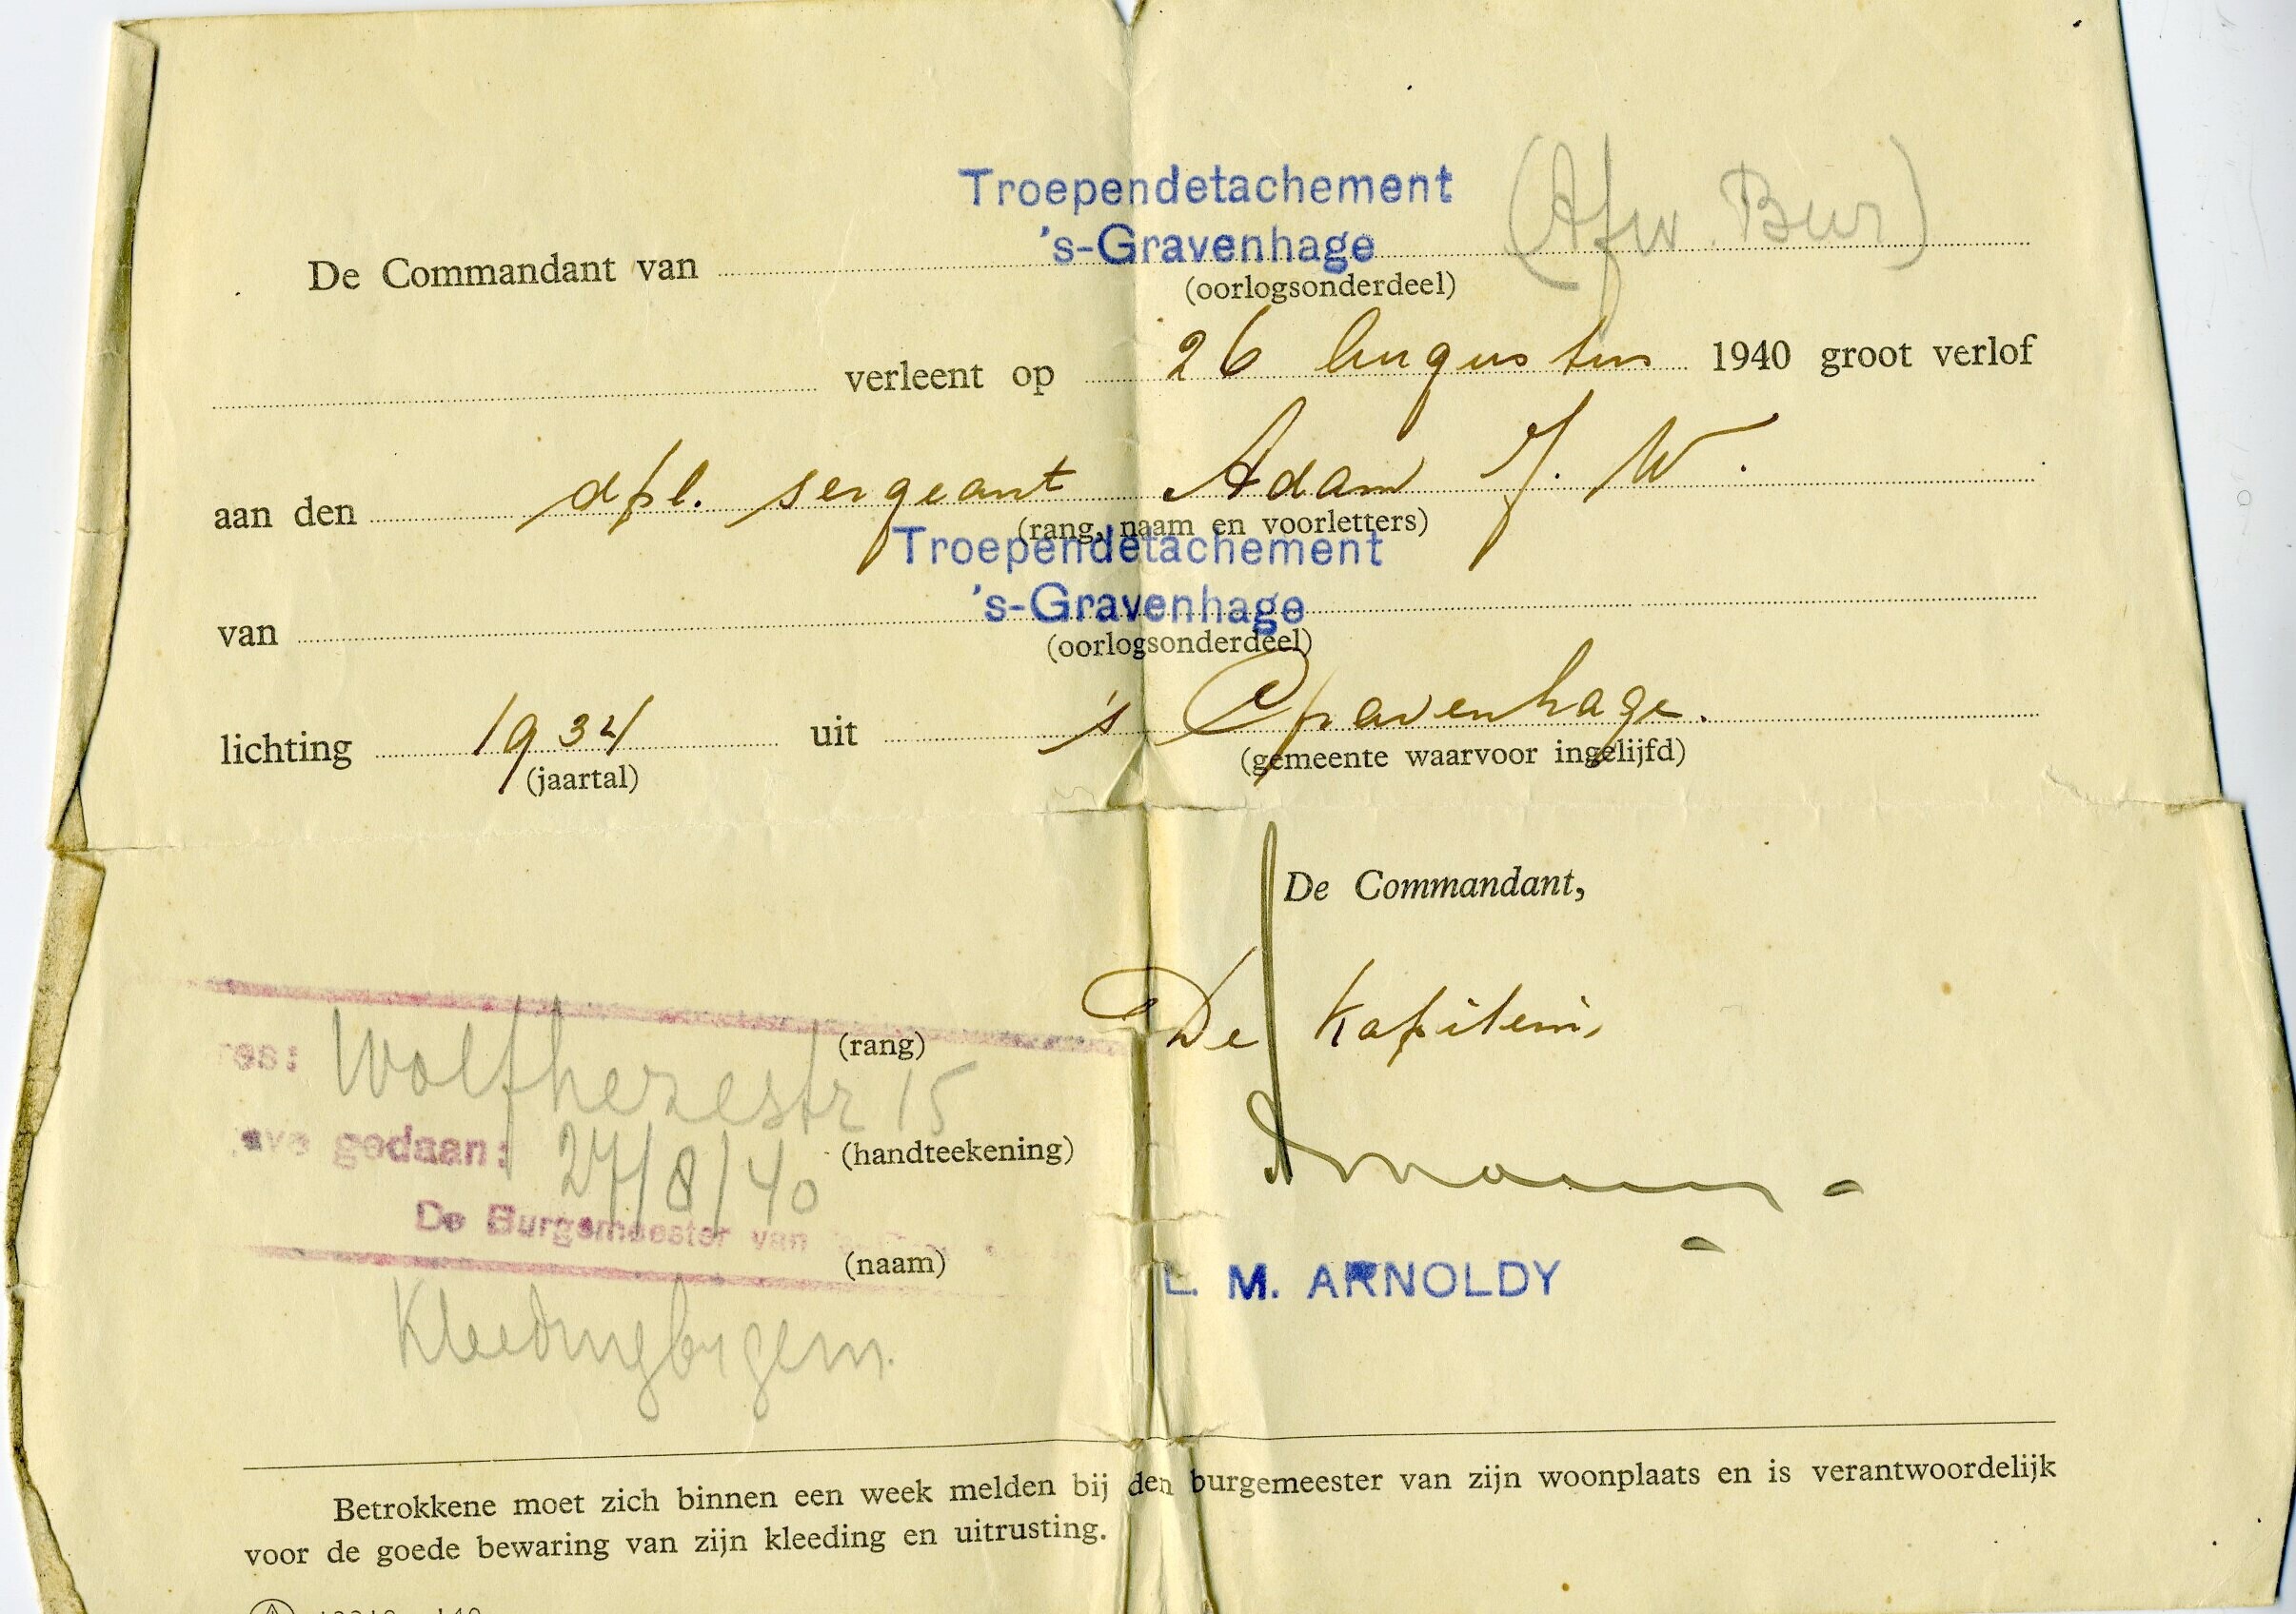 Troependetachement
's-Gravenhage (Afw. Bur)
De Commandant van
(oorlogsonderdeel)
verleent op 26 Augustus 1940 groot verlof
aan den dpl. sergeant Adam J. W.
(rang, naam en voorletters)
Troependetachement
's-Gravenhage
van
(oorlogsonderdeel)
lichting 1934 uit 's Gravenhage.
(jaartal) (gemeente waarvoor ingelijfd)
De Commandant,
(rang) De Kapitein,
res: Wolfhezestr 15
gedaan: 27/8/40 (handteekening)
De Burgemeester van
(naam) L. M. ARNOLDY
Kleeding
Betrokkene moet zich binnen een week melden bij den burgemeester van zijn woonplaats en is verantwoordelijk
voor de goede bewaring van zijn kleeding en uitrusting.